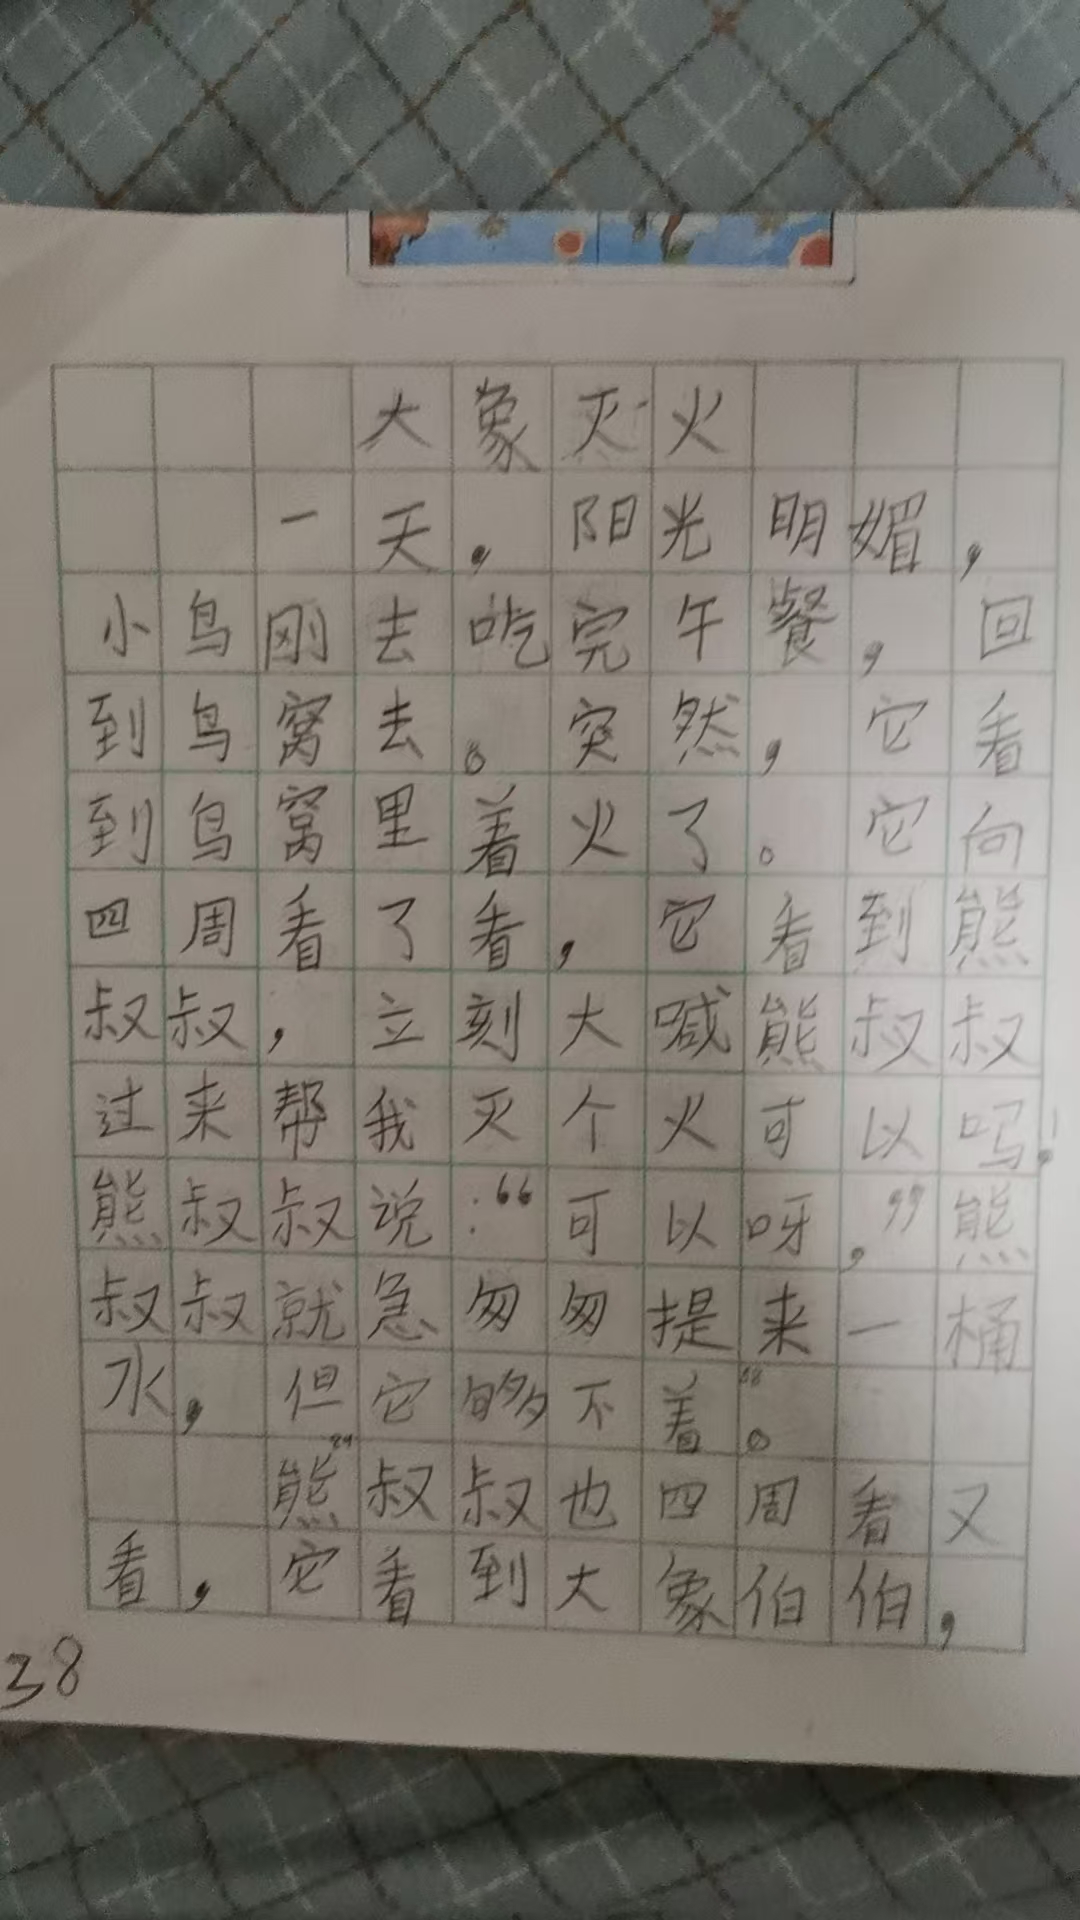 大象灭火
一天，阳光明媚，
小鸟刚去吃完午餐，回
到鸟窝去。突然，它看
到鸟窝里着火了。它向
四周看了看，它看到熊
叔叔，立刻大喊熊叔叔
过来帮我灭个火可以吗！
熊叔叔说：“可以呀，”熊
叔叔就急匆匆提来一桶
水，但它够不着。
熊叔叔也四周看又
看，它看到大象伯伯，
38